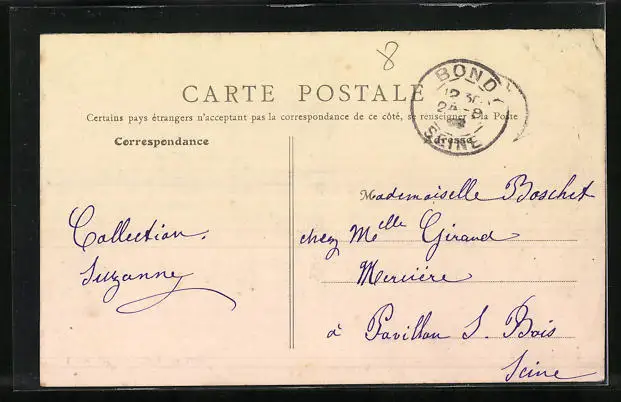 8
CARTE POSTALE
Certains pays étrangers n'acceptant pas la correspondance de ce côté, se renseigner à la Poste
Correspondance
BONDY
12 30
24 - 9
SEINE
Collection.
Suzanne
Mademoiselle Boschet
chez Melle Giraud
Mercière
à Pavillon S. Bois
Seine